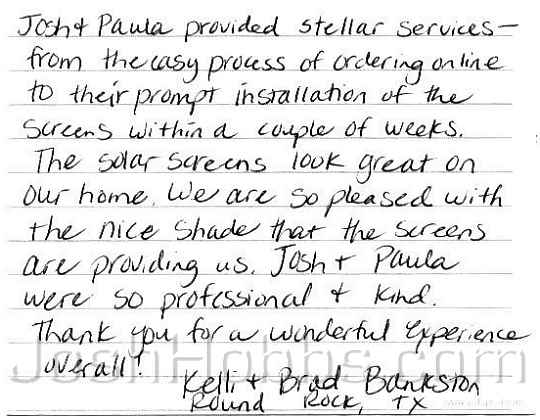 Josh + Paula provided stellar services—
from the easy process of ordering online
to their prompt installation of the
screens within a couple of weeks.
The solar screens look great on
our home. We are so pleased with
the nice shade that the screens
are providing us. Josh + Paula
were so professional + kind.
Thank you for a wonderful experience
overall!
JoshHobbs.com
Kelli + Brad Bankston
Round Rock, TX